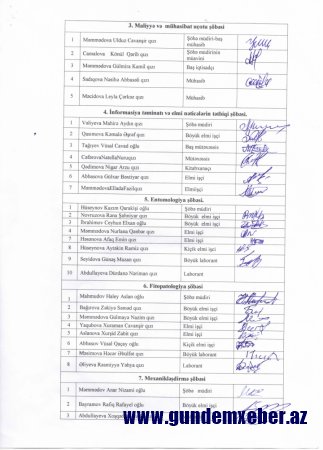 3. Maliyyə və mühasibat uçotu şöbəsi
1 Məmmədova Ulduz Cavanşir qızı Şöbə müdiri-baş mühasib
2 Camalova Könül Qərib qızı Şöbə müdirinin müavini
3 Məmmədova Gülmirə Kamil qızı Baş iqtisadçı
4 Sadıqova Nəsibə Abbasəli qızı Mühasib
5 Məcidova Leyla Çərkəz qızı Mühasib
4. İnformasiya təminatı və elmi nəticələrin tətbiqi şöbəsi.
1 Vəliyeva Mahirə Aydın qızı Şöbə müdiri
2 Qasımova Kəmalə Əşrəf qızı Böyük elmi işçi
3 Tağıyev Vüsal Cavad oğlu Baş mütəxəssis
4 CəfərovaNatellaNəruqızı Mütəxəssis
5 Qədimova Nigar Arzu qızı Kitabxanaçı
6 Abbasova Gülsər Bəxtiyar qızı Elmi işçi
7 MəmmədovaElladaFazilqızı Elmi işçi
5. Entomologiya şöbəsi.
1 Hüseynov Kazım Qaraköşi oğlu Şöbə müdiri
2 Novruzova Rəna Şahniyar qızı Böyük elmi işçi
3 İbrahimov Ceyhun Elxan oğlu Böyük elmi işçi
4 Məmmədova Nurlana Qənbər qızı Elmi işçi
7 Həsənova Afaq Emin qızı Elmi işçi
8 Həsənova Aytəkin Ramiz qızı Kiçik elmi işçi
9 Seyidova Günaş Məzan qızı Böyük laborant
10 Abdullayeva Dürdanə Nəriman qızı Laborant
6. Fitopatologiya şöbəsi
1 Mahmudov Haley Aslan oğlu Şöbə müdiri
2 Bağırova Zəkiyə Səməd qızı Böyük elmi işçi
3 Məmmədova Gülmayə Nazim qızı Böyük elmi işçi
4 Yaqubova Xuraman Cavanşir qızı Elmi işçi
5 Aslanova Xurşid Zahir qızı Elmi işçi
6 Abbasov Vüsal Qaçay oğlu Kiçik elmi işçi
7 Məsimova Həcər Əbülfət qızı Böyük laborant
8 Əliyeva Kəmtiyə Vahja qızı Laborant
7. Mexanikləşdirmə şöbəsi
1 Məmmədov Anar Nizami oğlu Şöbə müdiri
2 Bayramov Rafiq Rəfayel oğlu Böyük elmi işçi
3 Abdullayeva
www.gundemxeber.az